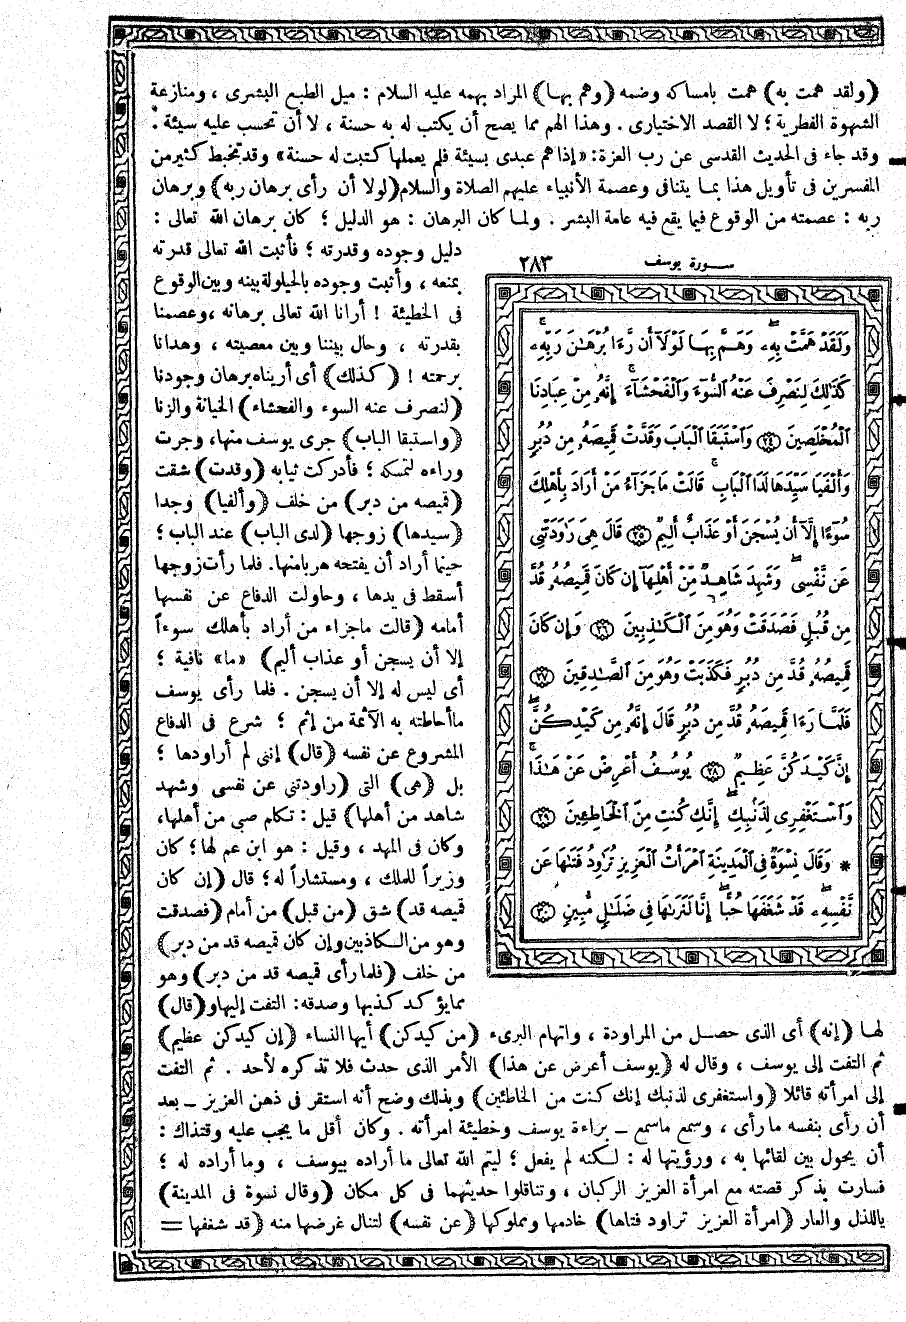 (ولقد همت به) همت بامساكه وضمه (وهم بها) المراد بهمه عليه السلام : ميل الطبع البشرى ، ومنازعة
الشهوة الفطرية ؛ لا القصد الاختيارى . وهذا الهم مما يصح أن يكتب له به حسنة ، لا أن تحسب عليه سيئة .
وقد جاء فى الحديث القدسى عن رب العزة: «إذا هم عبدى بسيئة فلم يعملها كتبت له حسنة» وقد تخبط كثير من
المفسرين فى تأويل هذا بما يتنافى وعصمة الأنبياء عليهم الصلاة والسلام (لولا أن رأى برهان ربه) وبرهان
ربه : عصمته من الوقوع فيما يقع فيه عامة البشر . ولما كان البرهان : هو الدليل ؛ كان برهان الله تعالى :
دليل وجوده وقدرته ؛ فأثبت الله تعالى قدرته
بمنعه ، وأثبت وجوده بالحيلولة بينه وبين الوقوع
فى الخطيئة ! أرانا الله تعالى برهانه ، وعصمنا
بقدرته ، وحال بيننا وبين معصيته ، وهدانا
برحمته ! (كذلك) أى أريناه برهان وجودنا
(لنصرف عنه السوء والفحشاء) الخيانة والزنا
(واستبقا الباب) جرى يوسف منها، وجرت
وراءه لتمسكه ؛ فأدركت ثيابه (وقدت) شقت
(قميصه من دبر) من خلف (وألفيا) وجدا
(سيدها) زوجها (لدى الباب) عند الباب ؛
حينما أراد أن يفتحه هربا منها. فلما رأت زوجها
أسقط فى يدها ، وحاولت الدفاع عن نفسها
أمامه (قالت ماجزاء من أراد بأهلك سوءاً
إلا أن يسجن أو عذاب أليم) «ما» نافية ؛
أى ليس له إلا أن يسجن . فلما رأى يوسف
ماأحاطته به الآثمة من إثم ؛ شرع فى الدفاع
المشروع عن نفسه (قال) إننى لم أراودها ؛
بل (هى) التى (راودتنى عن نفسى وشهد
شاهد من أهلها) قيل : تكلم صبى من أهلها،
وكان فى المهد ، وقيل : هو ابن عم لها؛ كان
وزيراً للملك ، ومستشاراً له؛ قال (إن كان
قميصه قد) شق (من قبل) من أمام (فصدقت
وهو من الكاذبين وإن كان قميصه قد من دبر)
من خلف (فلما رأى قميصه قد من دبر) وهو
مما يؤكد كذبها وصدقه: التفت إليها و(قال)
سورة يوسف ٢٨٣
وَلَقَدْ هَمَّتْ بِهِۦ وَهَمَّ بِهَا لَوْلَآ أَن رَّءَا بُرْهَٰنَ رَبِّهِۦ
كَذَٰلِكَ لِنَصْرِفَ عَنْهُ ٱلسُّوٓءَ وَٱلْفَحْشَآءَ إِنَّهُۥ مِنْ عِبَادِنَا
ٱلْمُخْلَصِينَ ﴿٢٤﴾ وَٱسْتَبَقَا ٱلْبَابَ وَقَدَّتْ قَمِيصَهُۥ مِن دُبُرٍ
وَأَلْفَيَا سَيِّدَهَا لَدَا ٱلْبَابِ قَالَتْ مَا جَزَآءُ مَنْ أَرَادَ بِأَهْلِكَ
سُوٓءًا إِلَّآ أَن يُسْجَنَ أَوْ عَذَابٌ أَلِيمٌ ﴿٢٥﴾ قَالَ هِىَ رَٰوَدَتْنِى
عَن نَّفْسِى وَشَهِدَ شَاهِدٌ مِّنْ أَهْلِهَآ إِن كَانَ قَمِيصُهُۥ قُدَّ
مِن قُبُلٍ فَصَدَقَتْ وَهُوَ مِنَ ٱلْكَٰذِبِينَ ﴿٢٦﴾ وَإِن كَانَ
قَمِيصُهُۥ قُدَّ مِن دُبُرٍ فَكَذَبَتْ وَهُوَ مِنَ ٱلصَّٰدِقِينَ ﴿٢٧﴾
فَلَمَّا رَءَا قَمِيصَهُۥ قُدَّ مِن دُبُرٍ قَالَ إِنَّهُۥ مِن كَيْدِكُنَّ
إِنَّ كَيْدَكُنَّ عَظِيمٌ ﴿٢٨﴾ يُوسُفُ أَعْرِضْ عَنْ هَٰذَا
وَٱسْتَغْفِرِى لِذَنۢبِكِ إِنَّكِ كُنتِ مِنَ ٱلْخَاطِـِٔينَ ﴿٢٩﴾
* وَقَالَ نِسْوَةٌ فِى ٱلْمَدِينَةِ ٱمْرَأَتُ ٱلْعَزِيزِ تُرَٰوِدُ فَتَىٰهَا عَن
نَّفْسِهِۦ قَدْ شَغَفَهَا حُبًّا إِنَّا لَنَرَىٰهَا فِى ضَلَٰلٍ مُّبِينٍ ﴿٣٠﴾
لها (إنه) أى الذى حصل من المراودة ، واتهام البرىء (من كيدكن) أيها النساء (إن كيدكن عظيم)
ثم التفت إلى يوسف ، وقال له (يوسف أعرض عن هذا) الأمر الذى حدث فلا تذكره لأحد . ثم التفت
إلى امرأته قائلا (واستغفرى لذنبك إنك كنت من الخاطئين) وبذلك وضح أنه استقر فى ذهن العزيز ــ بعد
أن رأى بنفسه ما رأى ، وسمع ماسمع ــ براءة يوسف وخطيئة امرأته . وكان أقل ما يجب عليه وقتذاك :
أن يحول بين لقائها به ، ورؤيتها له : لكنه لم يفعل ؛ ليتم الله تعالى ما أراده بيوسف ، وما أراده له ؛
فسارت بذكر قصته مع امرأة العزيز الركبان ، وتناقلوا حديثهما فى كل مكان (وقال نسوة فى المدينة)
ياللذل والعار (امرأة العزيز تراود فتاها) خادمها ومملوكها (عن نفسه) لتنال غرضها منه (قد شغفها =